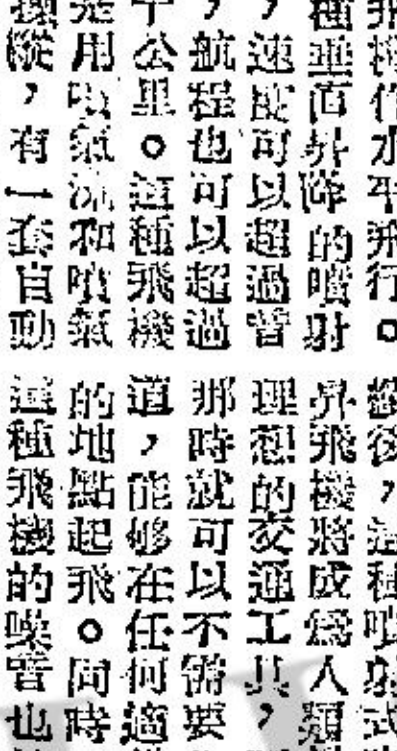 飛機作水平飛行。
種垂直昇降的噴射
，速度可以超過音
，航程也可以超過
千公里。這種飛機
是用噴氣流和噴氣
操縱，有一套自動
後，這種噴射式
昇飛機，將成爲人類
理想的交通工具，
那時就可以不需要
道，能够在任何適
的地點起飛。同時
這種飛機的噪音也